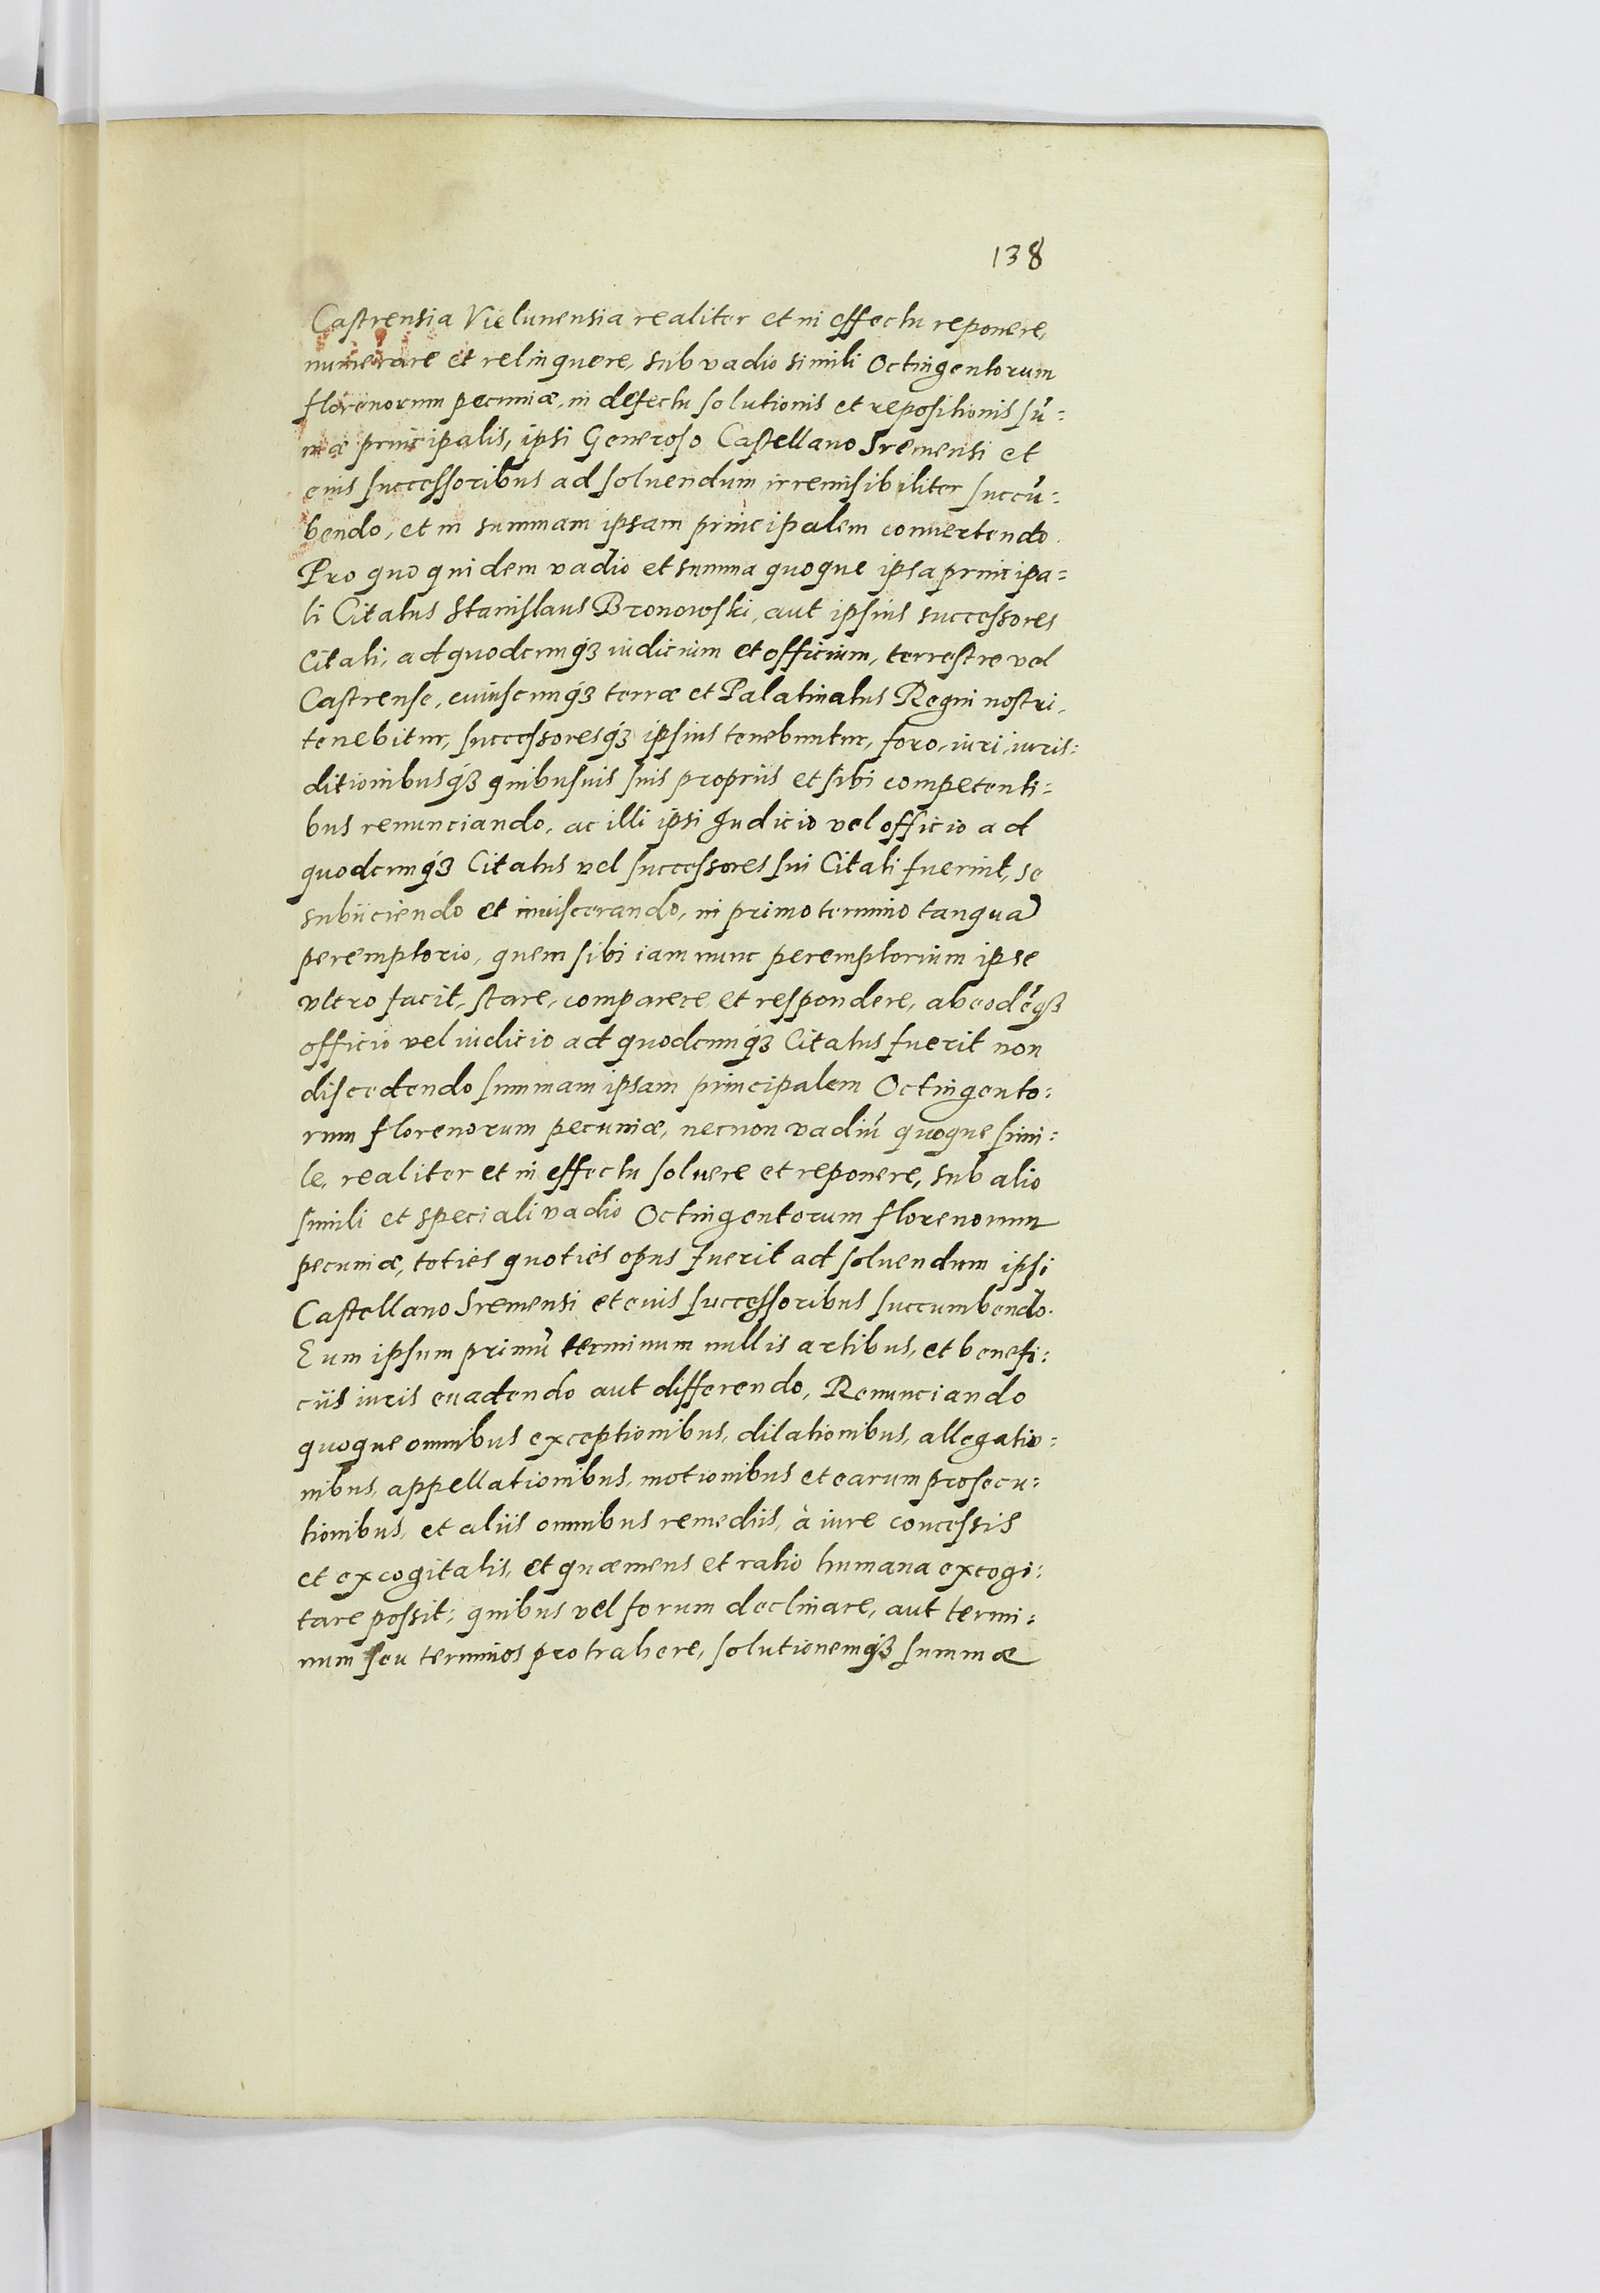 138
Castrensia Vielunensia realiter et in effectu reponere,
numerare et relinquere, sub vadio simili Octingentorum
florenorum pecuniæ, in defectu solutionis et repositionis sũ:
mæ principalis, ipsi Generoso Castellano Sremensi et
eius successoribus ad soluendum irremisibiliter succũ:
bendo, et in summam ipsam principalem conuertendo.
Pro quo quidem vadio et summa quoque ipsa principa=
li Citatus Stanislaus Bronowski, aut ipsius successores
Citati, ad quodcunq́ꝫ iudicium et officium, terrestre vel
Castrense, cuiuscunq́ꝫ terræ et Palatinatus Regni nostri,
tenebitur, successoresq́ꝫ ipsius tenebuntur, foro, iuri, iuris:
ditionibusq́ꝫ quibusuis suis propriis et sibi competenti=
bus renunciando, ac illi ipsi Judicio vel officio ad
quodcunq́ꝫ Citatus vel successores sui Citati fuerint, se
subiiciendo et inuiscerando, in primo termino tanquã
peremptorio, quem sibi iam nunc peremptorium ipse
vltro facit, stare, comparere et respondere, ab eodẽqꝫ
officio vel iudicio ad quodcunq́ꝫ Citatus fuerit non
discedendo summam ipsam principalem Octingento:
rum florenorum pecuniæ, necnon vadiũ quoque simi:
le, realiter et in effectu soluere et reponere, sub alio
simili et speciali vadio Octingentorum florenorum
pecuniæ, toties quoties opus fuerit ad soluendum ipsi
Castellano Sremensi et eius successoribus succumbendo.
Eum ipsum primũ terminum nullis artibus, et benefi:
ciis iuris euadendo aut differendo, Renunciando
quoque omnibus exceptionibus, dilationibus, allegatio=
nibus, appellationibus, motionibus et earum prosecu:
tionibus, et aliis omnibus remediis, à iure concessis
et excogitatis, et quæ mens et ratio humana excogi:
tare possit; quibus vel forum declinare, aut termi:
num seu terminos protrahere, solutionemq́ꝫ summæ